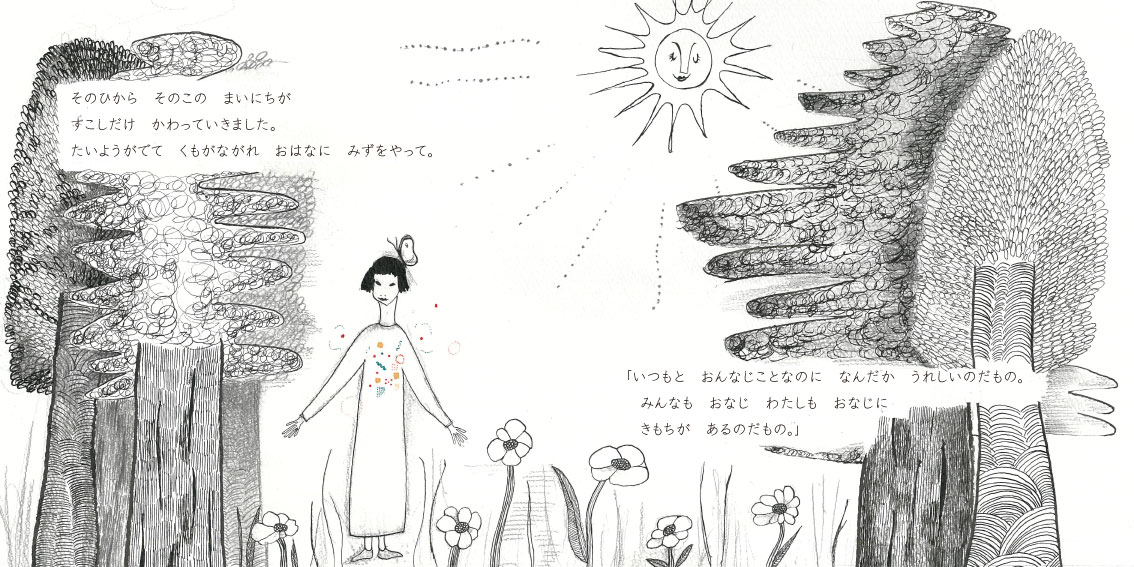 そのひから　そのこの　まいにちが
すこしだけ　かわっていきました。
たいようがでて　くもがながれ　おはなに　みずをやって。
「いつもと　おんなじことなのに　なんだか　うれしいのだもの。
みんなも　おなじ　わたしも　おなじに
きもちが　あるのだもの。」